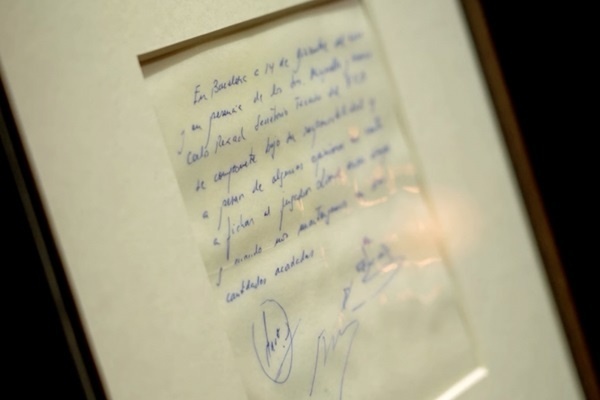 En Barcelona a 14 de diciembre del
y en presencia de los Sres Minguella y Horacio
Carlos Rexach Secretario Técnico del F.C.B
se compromete bajo su responsabilidad y
a pesar de algunas opiniones en contra
a fichar al jugador Lionel Messi
y cuando nos mantengamos en las
cantidades acordadas